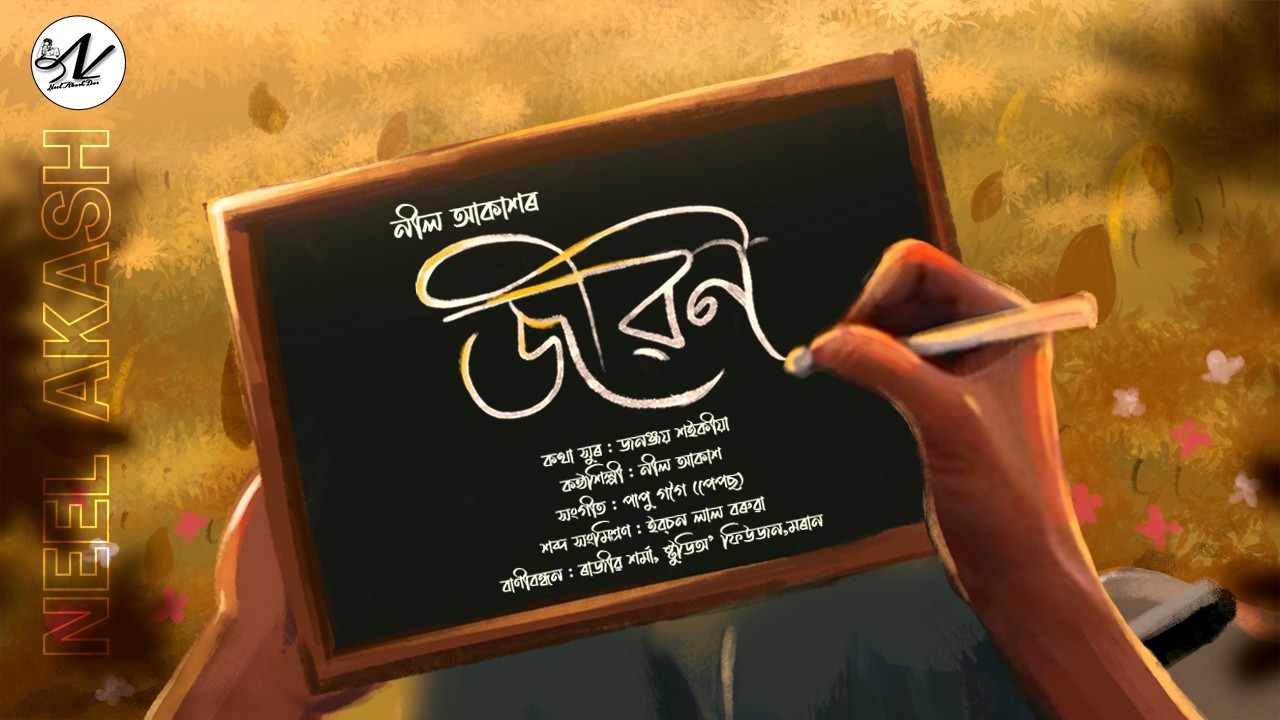 Neel Akash Das
NEEL AKASH
নীল আকাশৰ
জীৱন
কথা সুৰ : জনঞ্জয় শইকীয়া
কণ্ঠশিল্পী : নীল আকাশ
সংগীত : পাপু গগৈ (পেপছ)
শব্দ সংমিশ্ৰণ : ইবচন লাল বৰুৱা
বাণীবন্ধন : ৰাজীৱ শৰ্মা, ষ্টুডিঅ' ফিউজন,মৰান